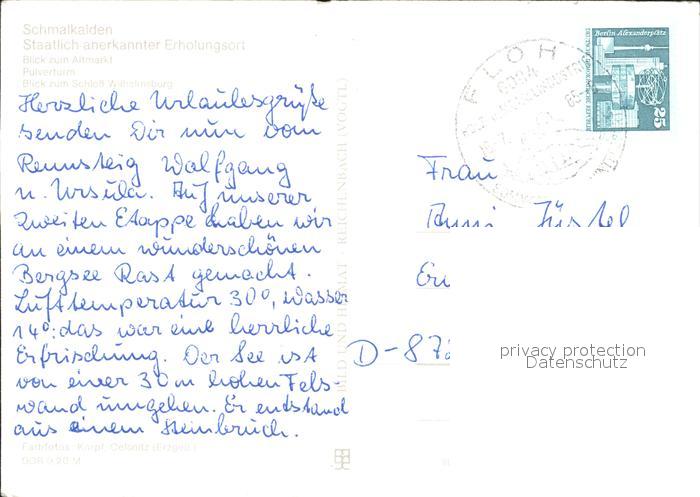 Schmalkalden
Staatlich anerkannter Erholungsort
Blick zum Altmarkt
Pulverturm
Blick zum Schloß Wilhelmsburg
Herzliche Urlaubsgrüße
senden Dir nun vom
Rennsteig Wolfgang
u. Ursula. Auf unserer
zweiten Etappe haben wir
an einem wunderschönen
Bergsee Rast gemacht.
Lufttemperatur 30°, Wasser
14°: das war eine herrliche
Erfrischung. Der See ist
von einer 30 m hohen Fels-
wand umgeben. Er entstand
aus einem Steinbruch.
Farbfotos: Karpf, Oelsnitz (Erzgeb.)
DDR 0,20 M
BILD UND HEIMAT · REICHENBACH (VOGTL)
FLÖH
6081
Berlin Alexanderplatz
25
Frau
Anni
D-87
privacy protection
Datenschutz